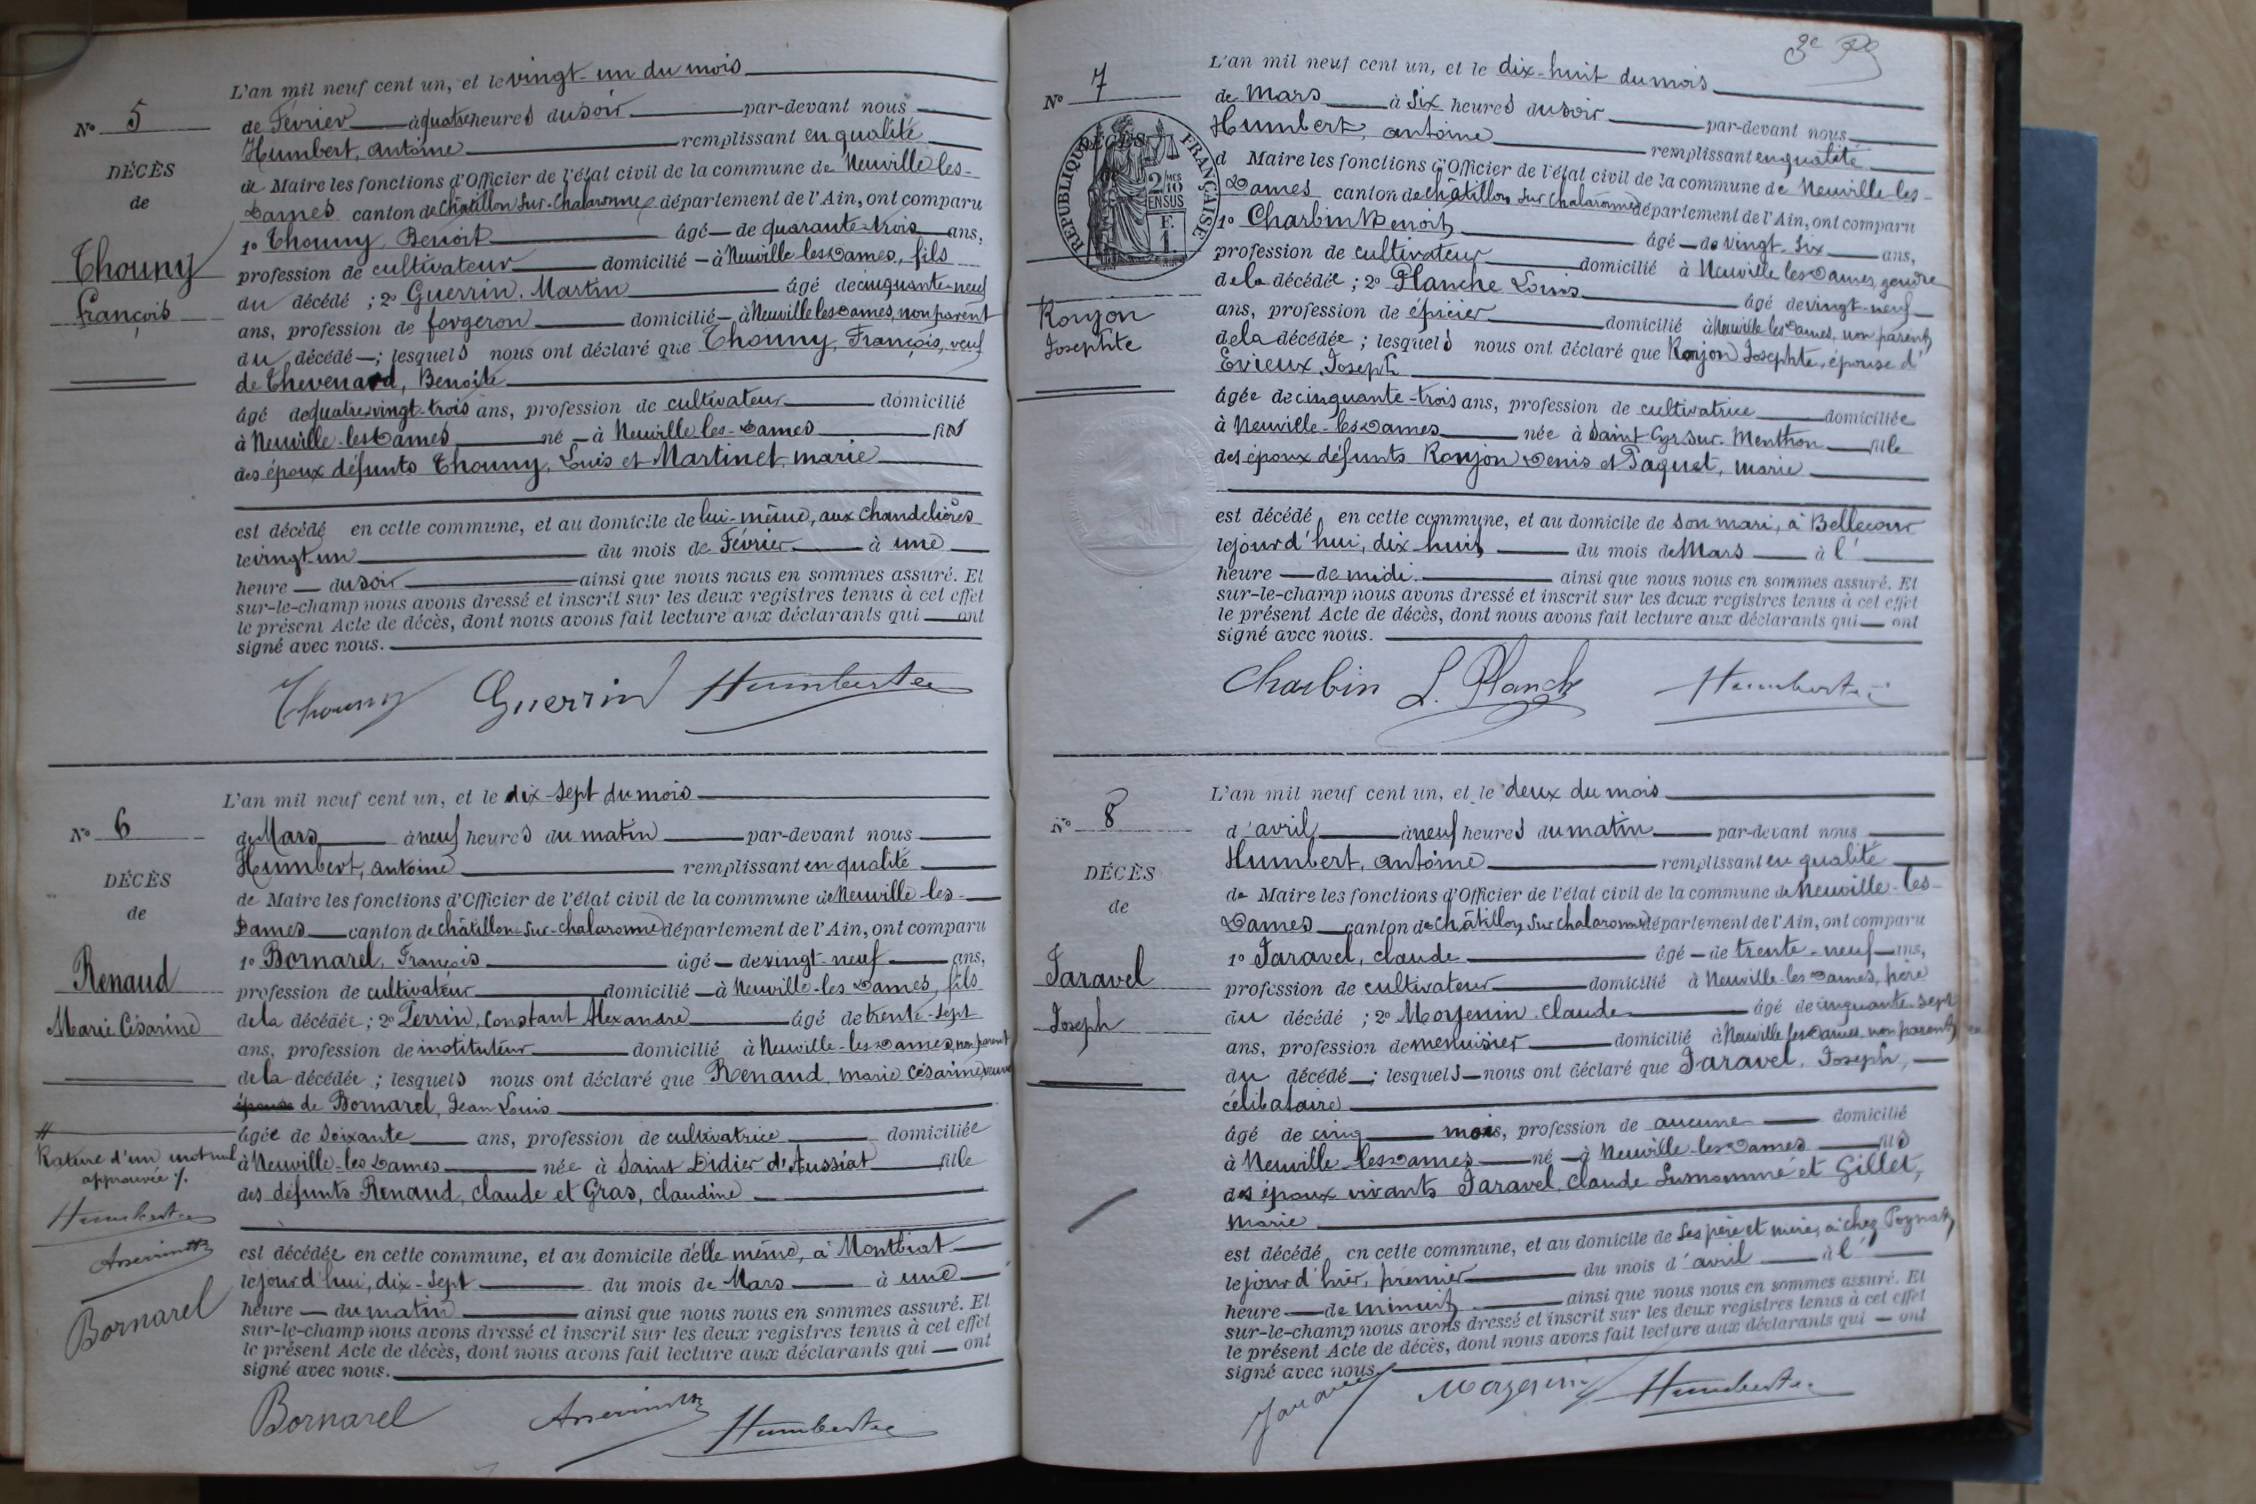 L'an mil neuf cent un, et le vingt-un du mois
N° 5
de Février à quatre heures du soir par-devant nous
Humbert, antoine remplissant en qualité
DÉCÈS
de Maire les fonctions d'Officier de l'état civil de la commune de Neuville-les-
de
Dames canton de Châtillon-sur-Chalaronne département de l'Ain, ont comparu
1° Thouny, Benoit âgé de quarante-trois ans,
Thouny
profession de cultivateur domicilié à Neuville les Dames, fils
François
du décédé ; 2° Guerrin, Martin âgé de cinquante-neuf
ans, profession de forgeron domicilié à Neuville les Dames, non parent
du décédé ; lesquels nous ont déclaré que Thouny, François, veuf
de Thevenard, Benoite
âgé de quatre-vingt-trois ans, profession de cultivateur domicilié
à Neuville-les-Dames né à Neuville les-Dames fils
des époux défunts Thouny, Louis et Martinet, marie
est décédé en cette commune, et au domicile de lui-même, aux chandelières
le vingt-un du mois de Février à une
heure du soir ainsi que nous nous en sommes assuré. Et
sur-le-champ nous avons dressé et inscrit sur les deux registres tenus à cet effet
le présent Acte de décès, dont nous avons fait lecture aux déclarants qui ont
signé avec nous.
Thouny Guerrin Humbert
L'an mil neuf cent un, et le dix-sept du mois
N° 6
de Mars à neuf heures du matin par-devant nous
Humbert, antoine remplissant en qualité
DÉCÈS
de Maire les fonctions d'Officier de l'état civil de la commune de Neuville-les-
de
Dames canton de châtillon-sur-chalaronne département de l'Ain, ont comparu
1° Bornarel, François âgé de vingt-neuf ans,
Renaud
profession de cultivateur domicilié à Neuville-les Dames, fils
Marie Césarine
de la décédée ; 2° Perrin, Constant Alexandre âgé de trente-sept
ans, profession de instituteur domicilié à Neuville-les-Dames, non parent
de la décédée ; lesquels nous ont déclaré que Renaud, marie Césarine, veuve
épouse de Bornarel, Jean Louis
âgée de soixante ans, profession de cultivatrice domiciliée
Rature d'un mot nul
à Neuville-les Dames née à Saint Didier d'Aussiat fille
approuvée %.
des défunts Renaud, claude et Gras, claudine
Humbert
est décédée en cette commune, et au domicile d'elle même, à Montbiat
le jour d'hui, dix-sept du mois de Mars à une
heure du matin ainsi que nous nous en sommes assuré. Et
Bornarel
sur-le-champ nous avons dressé et inscrit sur les deux registres tenus à cet effet
le présent Acte de décès, dont nous avons fait lecture aux déclarants qui ont
signé avec nous.
Bornarel Humbert
3e
L'an mil neuf cent un, et le dix-huit du mois
N° 7
de Mars à six heures du soir par-devant nous
Humbert, antoine remplissant en qualité
DÉCÈS
RÉPUBLIQUE FRANÇAISE
2 MES 10 EN SUS
F. 1.
d Maire les fonctions d'Officier de l'état civil de la commune de Neuville-les-
Dames canton de châtillon sur Chalaronne département de l'Ain, ont comparu
1° Charbin Benoit âgé de vingt-six ans,
profession de cultivateur domicilié à Neuville les Dames, gendre
de la décédée ; 2° Planche Louis âgé de vingt-neuf
Ronjon
ans, profession de épicier domicilié à Neuville les Dames, non parent
Josephte
de la décédée ; lesquels nous ont déclaré que Ronjon Josephte, épouse d'
Evieux, Joseph
âgée de cinquante-trois ans, profession de cultivatrice domiciliée
à Neuville-les-Dames née à Saint Cyr sur Menthon fille
des époux défunts Ronjon Denis et Paquet, marie
est décédé en cette commune, et au domicile de son mari, à Bellecour
le jour d'hui, dix huit du mois de Mars à l'
heure de midi. ainsi que nous nous en sommes assuré. Et
sur-le-champ nous avons dressé et inscrit sur les deux registres tenus à cet effet
le présent Acte de décès, dont nous avons fait lecture aux déclarants qui ont
signé avec nous.
Charbin L. Planche Humbert
L'an mil neuf cent un, et le deux du mois
N° 8
d'avril à neuf heures du matin par-devant nous
Humbert, antoine remplissant en qualité
DÉCÈS
de Maire les fonctions d'Officier de l'état civil de la commune de Neuville-les-
de
Dames canton de châtillon sur chalaronne département de l'Ain, ont comparu
1° Taravel, claude âgé de trente-neuf ans,
Taravel
profession de cultivateur domicilié à Neuville-les-Dames, père
Joseph
du décédé ; 2° Moyenin, claude âgé de cinquante-sept
ans, profession de menuisier domicilié à Neuville les Dames, non parent
du décédé ; lesquels nous ont déclaré que Taravel, Joseph,
célibataire
âgé de cinq mois, profession de aucune domicilié
à Neuville-les-Dames né à Neuville-les-Dames fils
des époux vivants Taravel, claude surnommé et Gillet,
Marie
est décédé en cette commune, et au domicile de ses père et mère, à chez
le jour d'hier, premier du mois d'avril à l'
heure de minuit ainsi que nous nous en sommes assuré. Et
sur-le-champ nous avons dressé et inscrit sur les deux registres tenus à cet effet
le présent Acte de décès, dont nous avons fait lecture aux déclarants qui ont
signé avec nous.
Taravel Moyenin Humbert